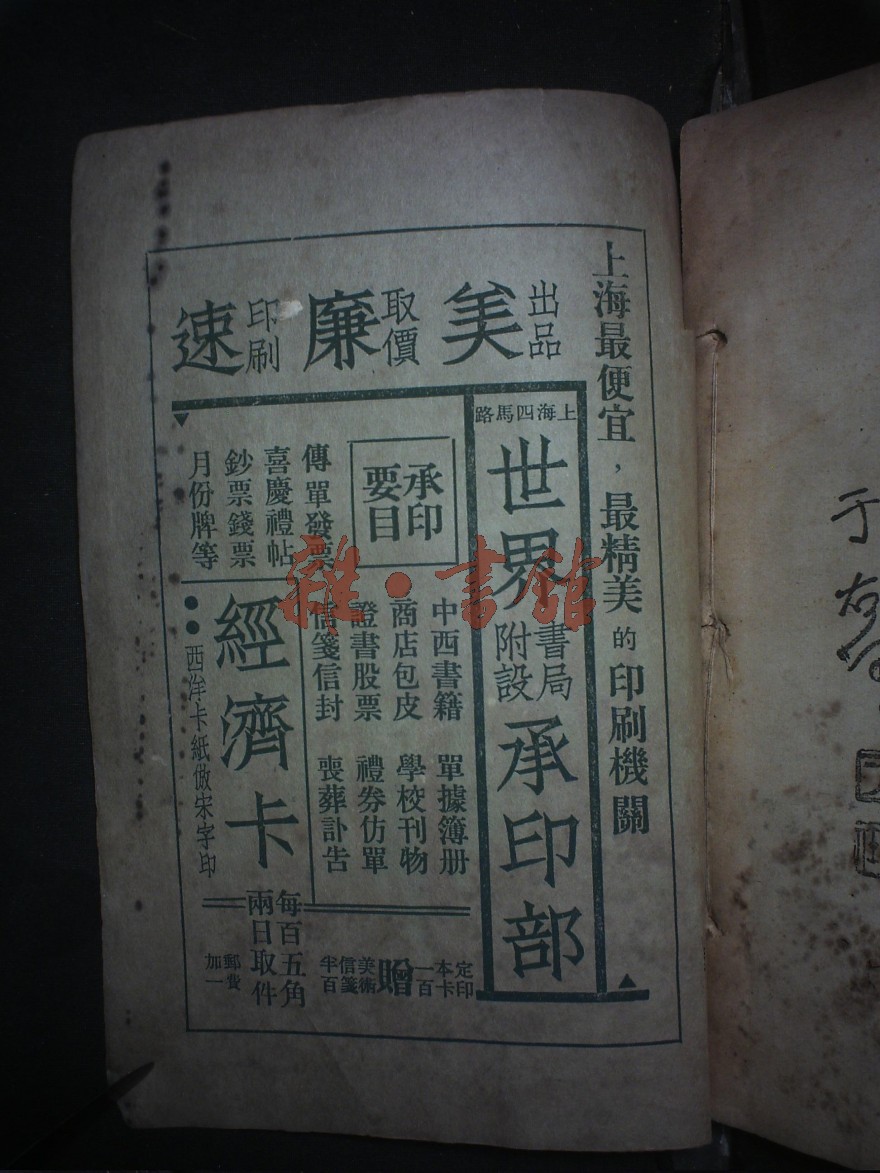 上海最便宜，最精美的印刷機關
出品美
取價廉
印刷速
上海四馬路
世界書局附設承印部
承印要目
中西書籍
單據簿册
商店包皮
學校刊物
證書股票
禮券仿單
信箋信封
喪葬訃告
傳單發票
喜慶禮帖
鈔票錢票
月份牌等
定印本卡一百贈美術信箋半百
經濟卡
西洋卡紙倣宋字印
每百五角
兩日取件
郵費加一
雜·書館
于右